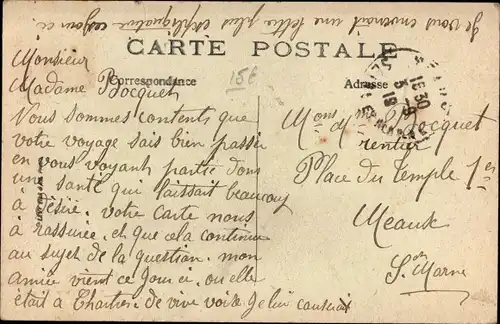 Je vous enverrait une lettre plus explicative ces jours ci
CARTE POSTALE
Correspondance
Adresse
15E
Monsieur
Madame Bocquet
Nous sommes contents que
votre voyage sais bien passer
en vous voyant partie dans
un santé qui laissait beaucoup
à désiré. votre carte nous
à rassurée. et que cela continue
au sujet de la question. mon
amiée vient ce jour ci, ou elle
était à Chartres de vive voix Je lui causerais
Mons
Bocquet
rentier
Place du Temple 1er
Meaux
S. Marne
16 30